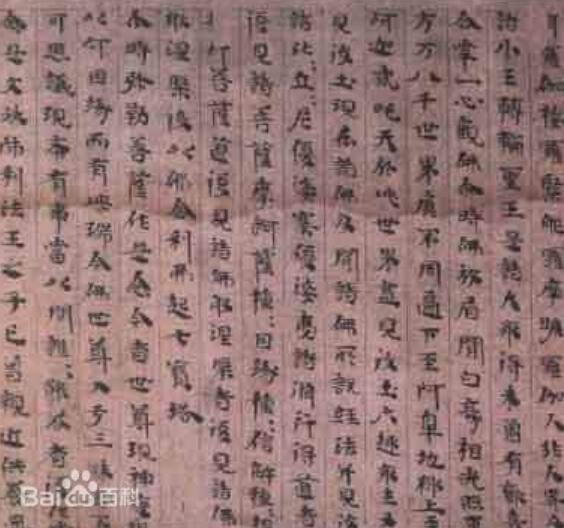 羅加樓羅緊那羅摩睺羅伽人非人及
諸小王轉輪聖王是諸大眾得未曾有歡
合掌一心觀佛尒時佛放眉間白毫相光照
方万八千世界靡不周遍下至阿鼻地獄上
阿迦貳吒天於此世界盡見彼土六趣眾生
見彼土現在諸佛及聞諸佛所說經法并見彼
諸比〻丘〻尼優婆塞優婆夷諸脩行得道者
復見諸菩薩摩訶薩種〻因緣種〻信解種〻
行菩薩道復見諸佛般涅槃者復見諸佛
般涅槃後以佛舍利起七寶塔
尒時弥勒菩薩作是念今者世尊現神變
以何因緣而有此瑞今佛世尊入于三昧
可思議現希有事當以問誰〻能荅者
念是文殊師利法王之子已曾親近供養
Baidu百科